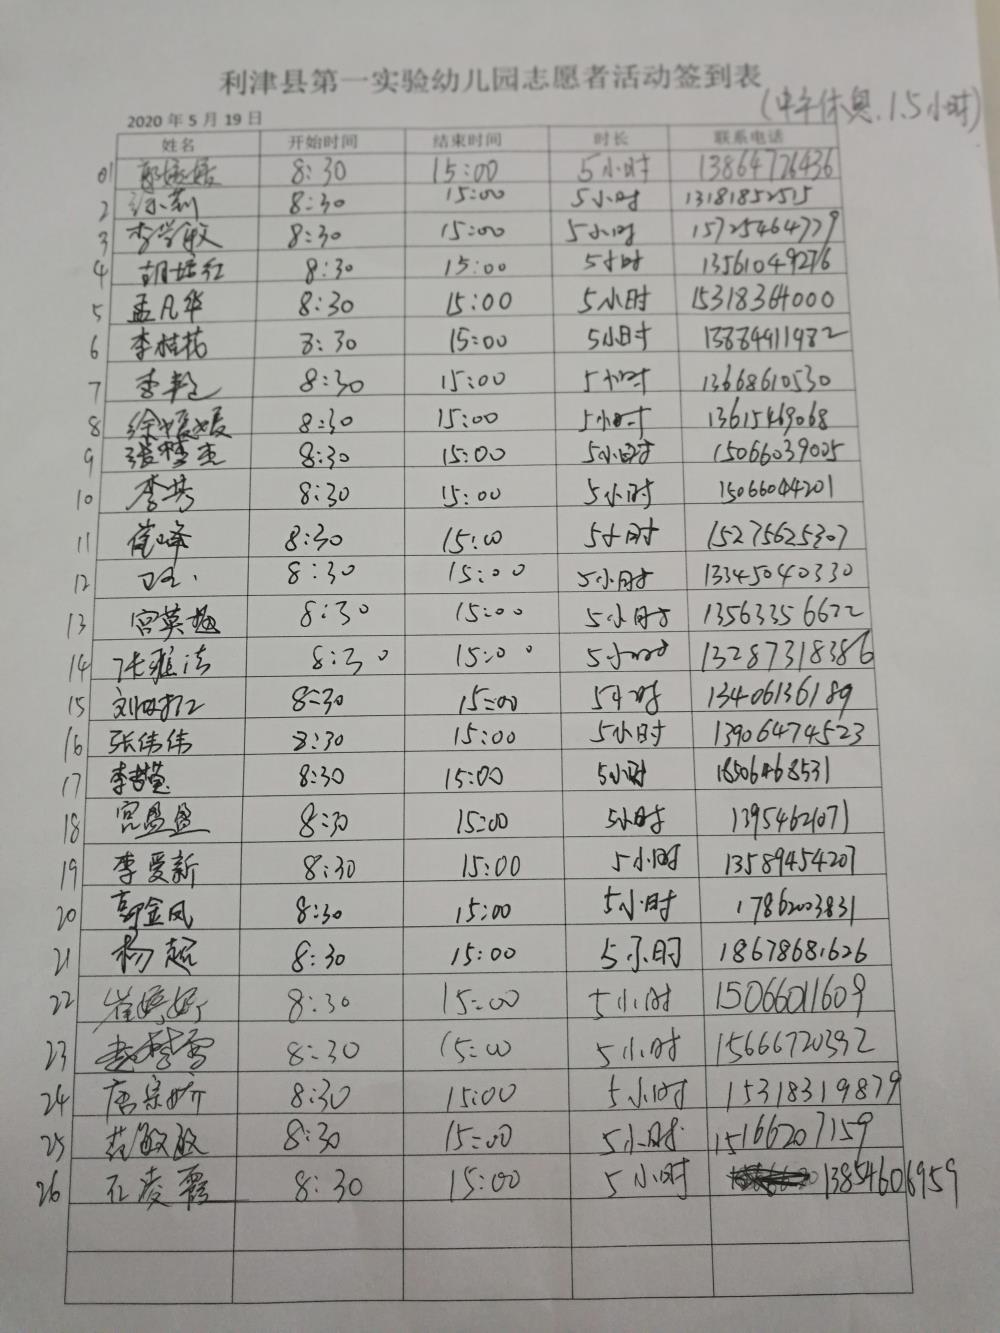 利津县第一实验幼儿园志愿者活动签到表
(中午休息1.5小时)
2020年5月19日
姓名 开始时间 结束时间 时长 联系电话
01 8:30 15:00 5小时 13864726436
2 8:30 15:00 5小时 13181852515
3 李学敏 8:30 15:00 5小时 15725464779
4 胡培红 8:30 15:00 5小时 13561049276
5 孟凡华 8:30 15:00 5小时 15318364000
6 李桂花 8:30 15:00 5小时 13884911982
7 李 8:30 15:00 5小时 13668610530
8 徐媛媛 8:30 15:00 5小时 13615469068
9 张 8:30 15:00 5小时 15066039005
10 李 8:30 15:00 5小时 15066044201
11 崔峰 8:30 15:00 5小时 15275625307
12 8:30 15:00 5小时 13345040330
13 宫英梅 8:30 15:00 5小时 13563356622
14 张雅洁 8:30 15:00 5小时 13287318386
15 刘 8:30 15:00 5小时 13406136189
16 张伟伟 8:30 15:00 5小时 13906474523
17 李 8:30 15:00 5小时 18506468531
18 宫盈盈 8:30 15:00 5小时 13954621071
19 李爱新 8:30 15:00 5小时 13589454207
20 郭金凤 8:30 15:00 5小时 17862003831
21 杨超 8:30 15:00 5小时 18678681626
22 崔婷婷 8:30 15:00 5小时 15066011609
23 8:30 15:00 5小时 15666720392
24 唐宗娇 8:30 15:00 5小时 15318319879
25 范敏敏 8:30 15:00 5小时 15166207159
26 石凌霞 8:30 15:00 5小时 13854606959